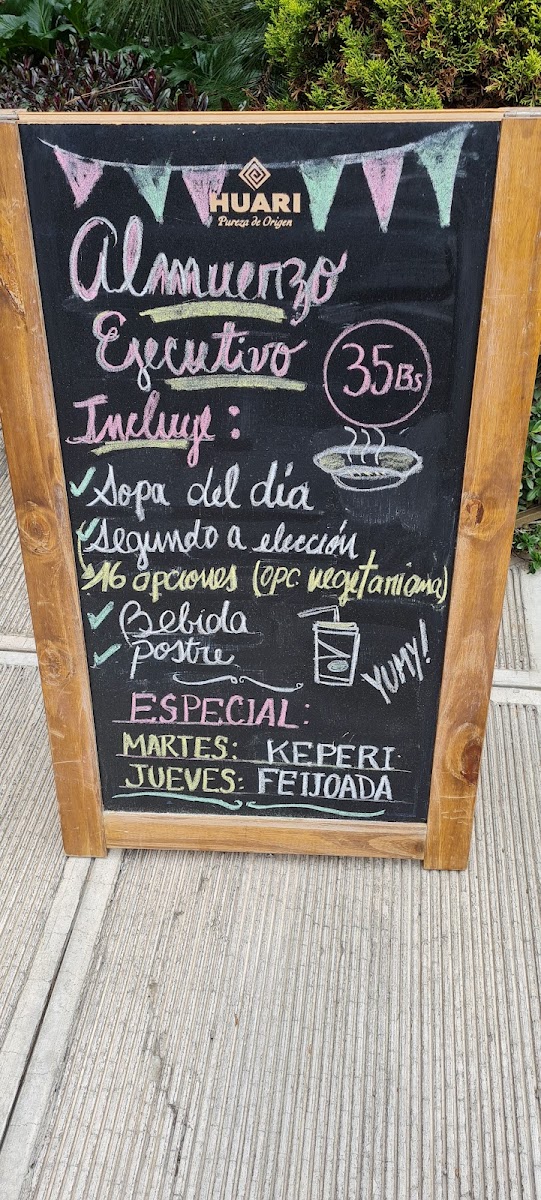 HUARI
Pureza de Origen
Almuerzo
Ejecutivo
35Bs
Incluye:
Sopa del día
Segundo a elección
16 opciones (opc. vegetariana)
Bebida
Postre
YUMY!
ESPECIAL:
MARTES: KEPERI
JUEVES: FEIJOADA